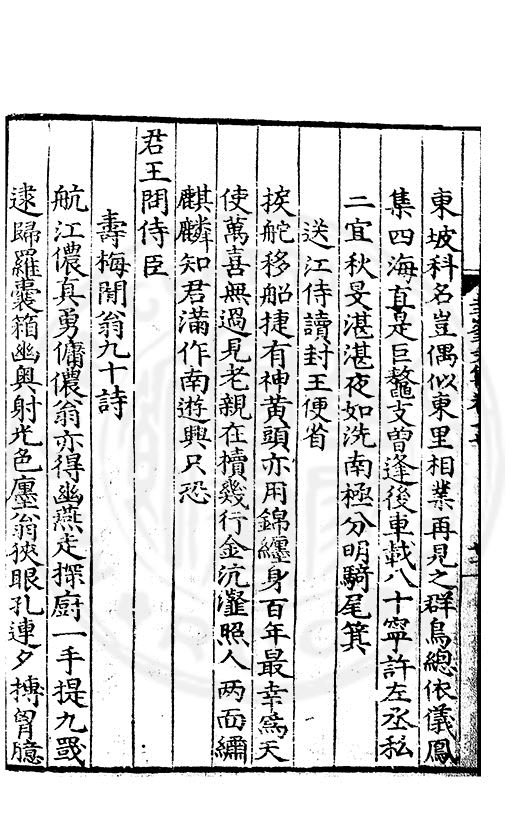 東坡科名豈偶似東里相業再見之群鳥總依儀鳳
集四海直是巨鼇支曾逢後車載八十寧許左丞私
二宜秋旻湛湛夜如洗南極分明騎尾箕
送江侍讀封王便省
捩舵移船捷有神黃頭亦用錦纏身百年最幸為天
使萬喜無過見老親在櫝幾行金沆瀣照人两面繡
麒麟知君滿作南遊興只恐
君王問侍臣
壽梅閒翁九十詩
航江儂真勇傭儂翁亦得幽燕走探廚一手提九罭
逮歸羅囊箱幽輿射光色廛翁狹眼孔連夕摶胷臆